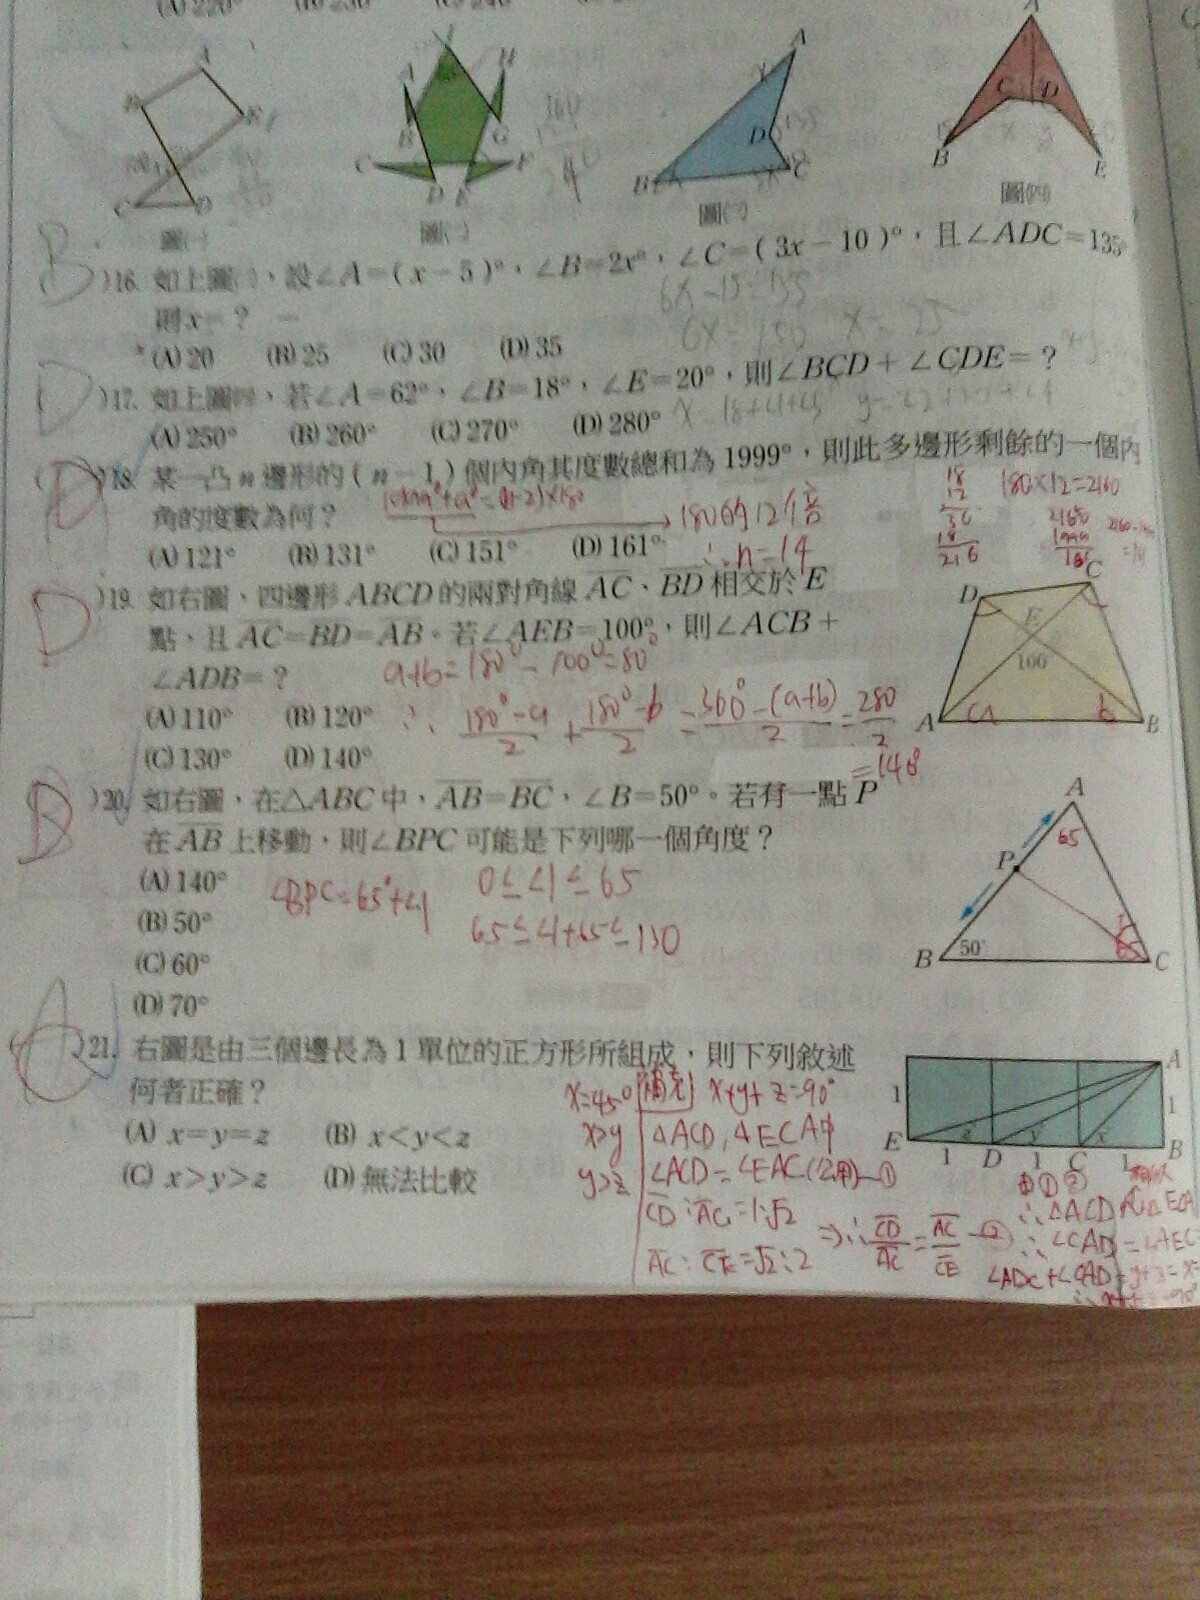 (A) 220°
圖㈠
圖㈡
圖㈢
圖㈣
)16. 如上圖㈢，設∠A=(x-5)°，∠B=2x°，∠C=(3x-10)°，且∠ADC=135°
則x=?
(A) 20 (B) 25 (C) 30 (D) 35
)17. 如上圖㈣，若∠A=62°，∠B=18°，∠E=20°，則∠BCD+∠CDE=?
(A) 250° (B) 260° (C) 270° (D) 280°
)18. 某一凸n邊形的(n-1)個內角其度數總和為1999°，則此多邊形剩餘的一個內
角的度數為何？
180的12倍
180×12=2160
(A) 121° (B) 131° (C) 151° (D) 161°
∴n=14
)19. 如右圖，四邊形ABCD的兩對角線AC、BD相交於E
點，且AC=BD=AB。若∠AEB=100°，則∠ACB+
∠ADB=?
a+b=180°-100°=80°
(A) 110° (B) 120°
∴ (180°-a)/2 + (180°-b)/2 = (360°-(a+b))/2 = 280/2
(C) 130° (D) 140°
=140°
D C E 100 A a b B
)20. 如右圖，在△ABC中，AB=BC，∠B=50°。若有一點P
在AB上移動，則∠BPC可能是下列哪一個角度？
(A) 140°
∠BPC=65°+∠1
0≤∠1≤65
(B) 50°
65≤∠1+65≤130
(C) 60°
(D) 70°
A 65 P B 50° C
)21. 右圖是由三個邊長為1單位的正方形所組成，則下列敘述
何者正確？
(A) x=y=z (B) x<y<z
(C) x>y>z (D) 無法比較
x=45°
x>y
y>z
補充 x+y+z=90°
△ACD, △ECA中
∠ACD=∠EAC(公用)—①
CD:AC=1:√2
AC:CE=√2:2
⇒∴CD/AC=AC/CE—②
由①②
∴△ACD∽△ECA
∴∠CAD=∠AEC
∠ADC+∠CAD=y+z=x=
A 1 1 E z y x 1 D 1 C 1 B